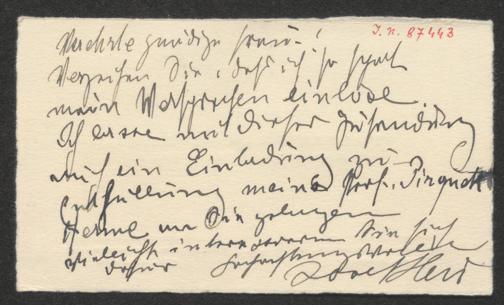 J. N. 87443
Verehrte gnädige Frau!
Verzeihen Sie, daß ich so spät
mein Versprechen einlöse
Ich lasse mit dieser Zusendung
auch ein Einladung zu
Enthüllung meiner Prof. Pirquet
Herme an Sie gelangen
vielleicht interessieren Sie sich
dafür Hochachtungsvoll